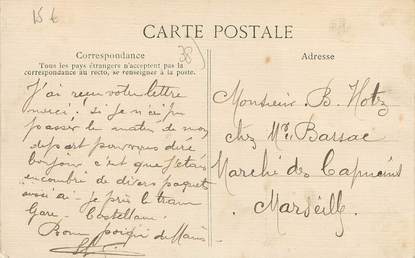 15 €
38)
CARTE POSTALE
Correspondance
Tous les pays étrangers n'acceptent pas la
correspondance au recto, se renseigner à la poste.
J'ai reçu votre lettre
merci. Si je n'ai pu
passer le matin de mon
départ pour vous dire
bonjour c'est que j'étais
encombré de divers paquets
aussi ai-je pris le tram
Gare
Bonne poignée de Mains
Adresse
Monsieur B. Hotz
chez Mr Barsac
Marché des Capucins
Marseille